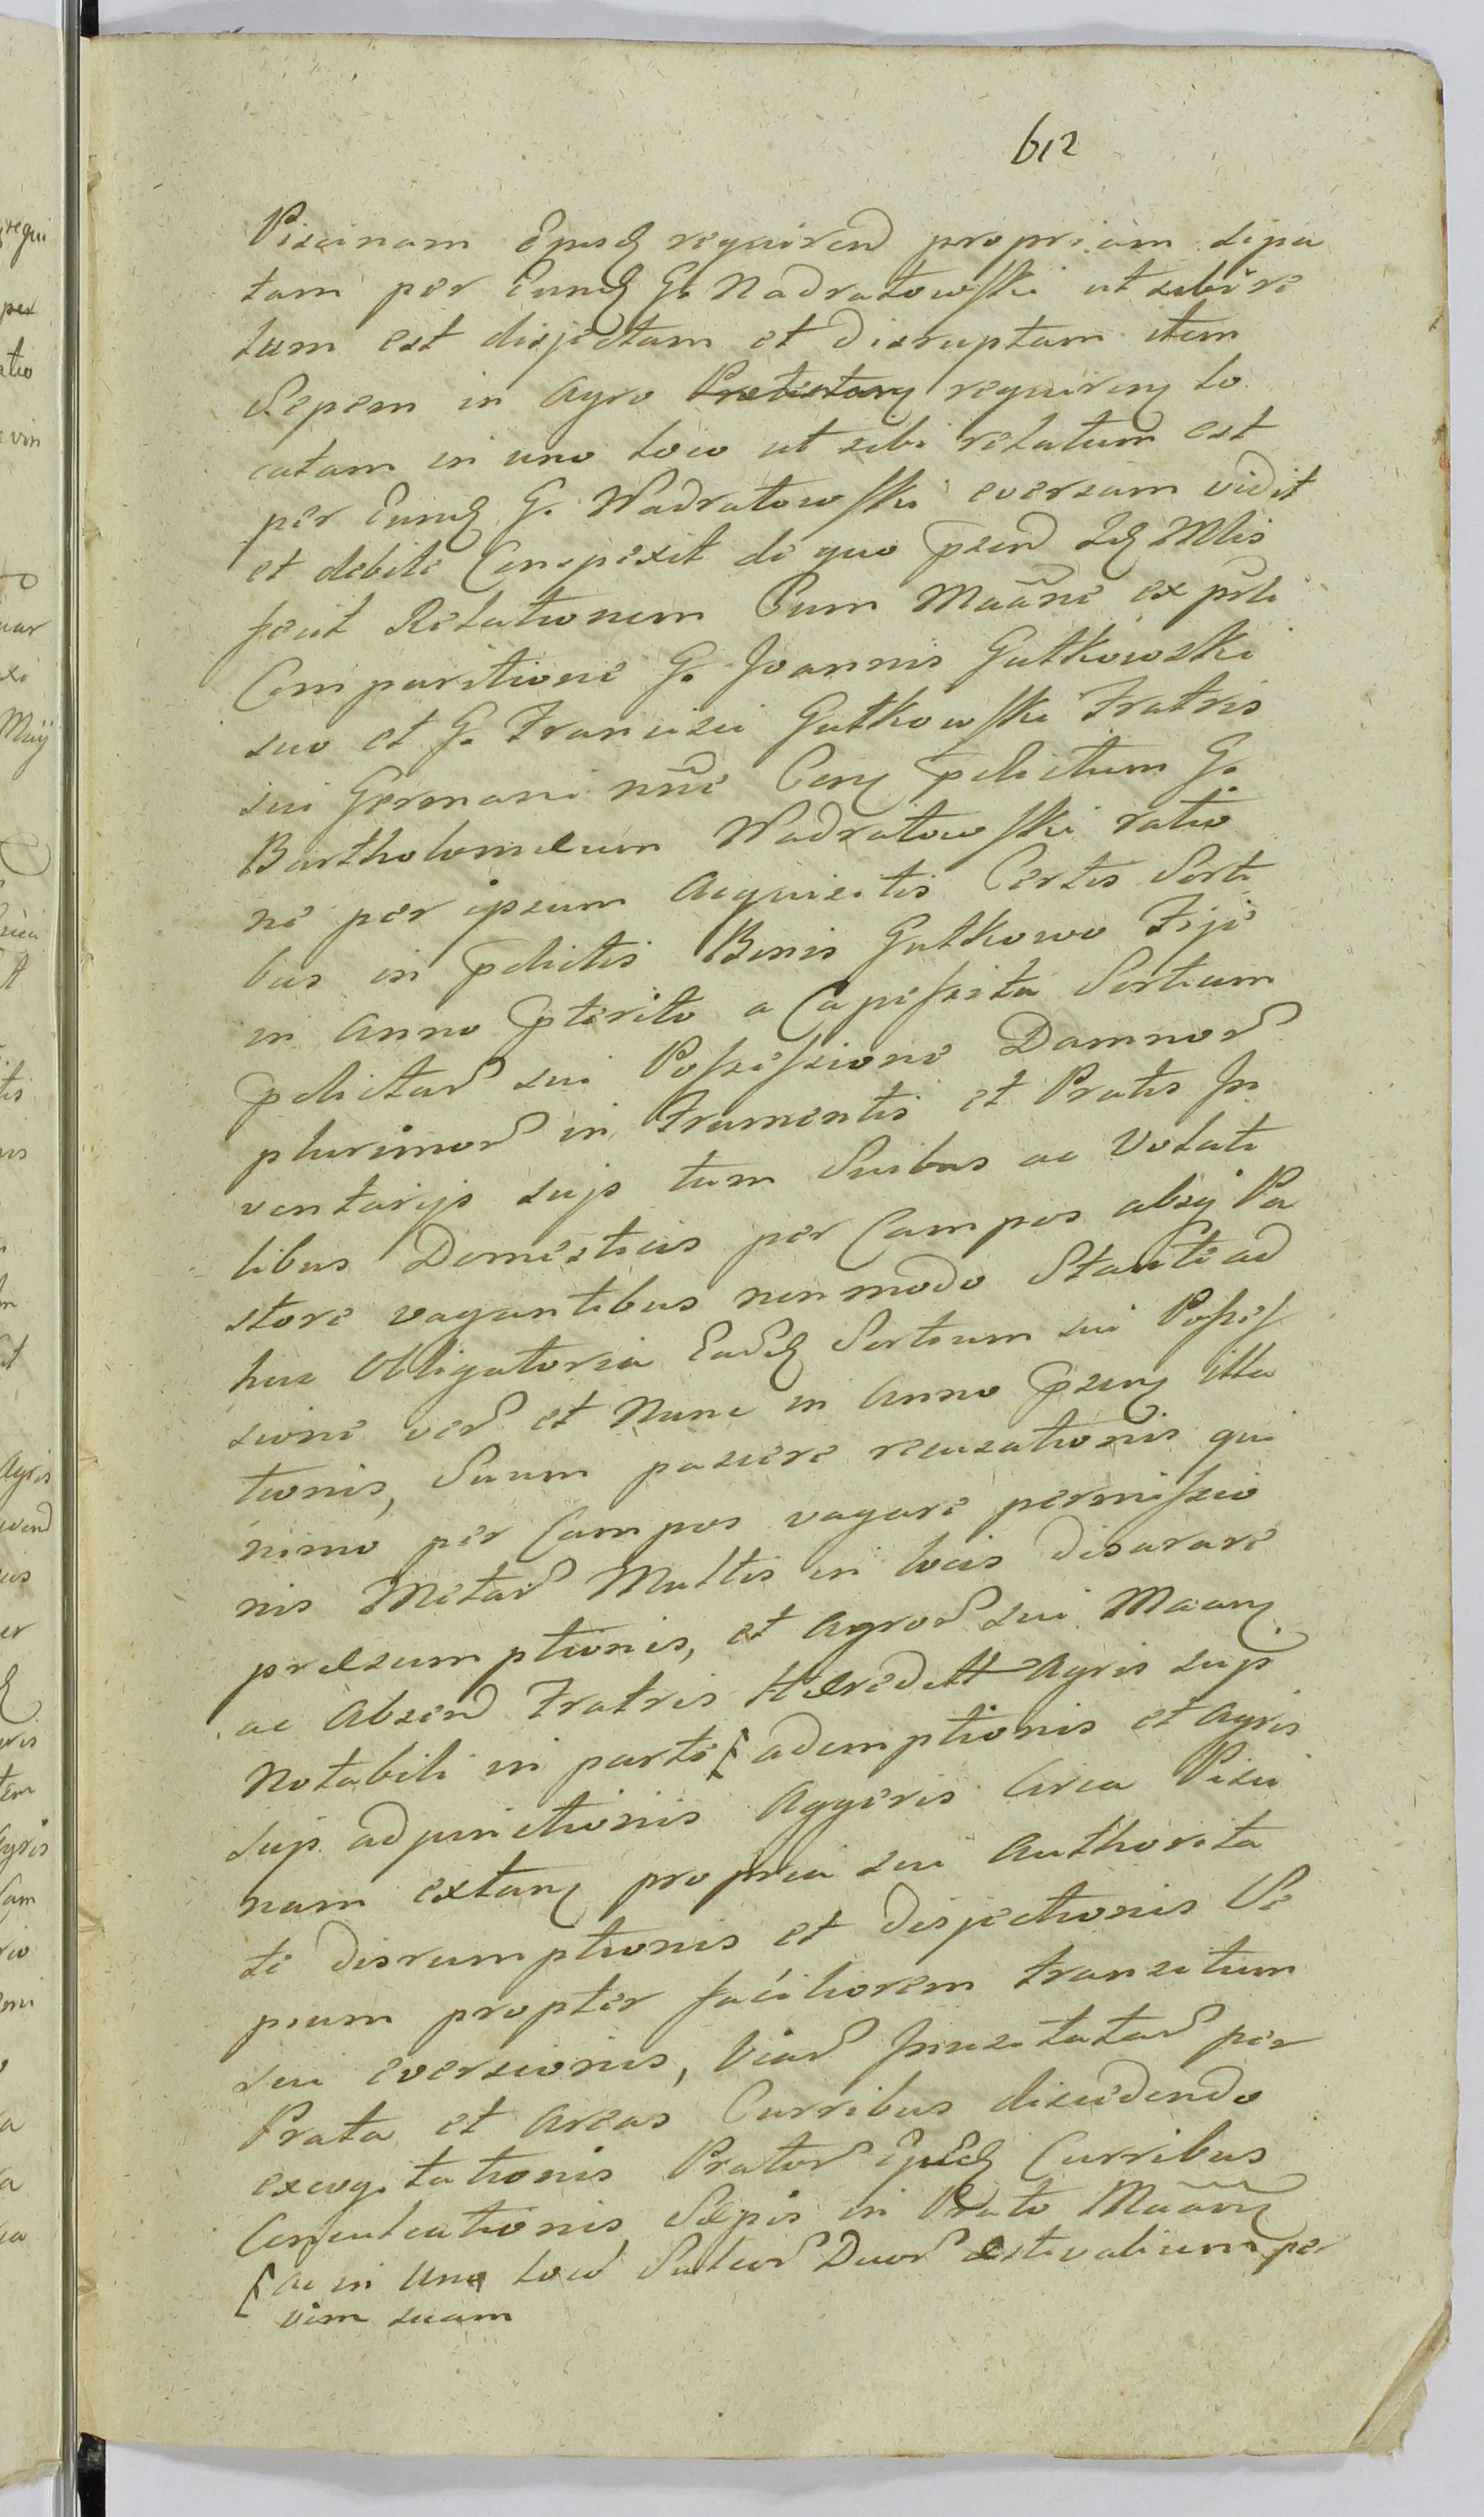 612
Piscinam Ejusd requirend propriam sipa
tam per Eund G. Nadratowski ut sibi re
tum est disjectam et disruptam item
Sepem in agro requiren lo
catam in uno loco ut sibi relatum est
per Eund G. Nadratowski eversam vidit
et debite Conspexit de quo pñnd Idẽ Mlis
fecit Relationem Cum Maãne ex pñti
Comparitione G. Joannis Gutkowski
suo et G. Francisci Gutkowski Fratris
sui Germani nñe Con pdictum G.
Bartholomeum Nadratowski ratio
ne per ipsum acquisitis Certis Sorti
bus in pdictis Bonis Gutkowo Fije
in anno pterito a Capessita Sortium
pdictar sui Possessione Damnor
plurimor in Frumentis et Pratis In
ventarijs sujs tum Suibus ac Volati
libus Domesticis per Campos absq Pa
store vagantibus non modo Stante ad
huc obligatoria Eard Sortium sui Posses
sione ver et Nunc in anno pzen illa
tionis, Suum pascere recusationis qui
nimo per Campos vagare permissio
nis Metar Multis in locis disarare
præsumptionis, et agror sui Maan
ac absend Fratris Hæreditt agris sujs
Notabili in parte [ ademptionis et agris
sujs adjunctionis aggeris Circa Pisci
nam extan propria sui authorita
te disrumptionis et disjectionis Se
pium propter faciliorem transitum
sui eversionis, Viar Inusitatar per
Prata et areas Curribus discedendo
excogitationis Prator Ejusd Curribus
Conculcationis Sepis in Prato Maãn
[ ac in Uno loco Sulcor Duor æstivalium per
vim suam